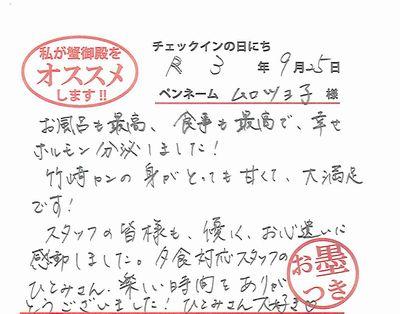 私が蟹御殿を
オススメ
します!!
チェックインの日にち
R 3 年 9月 25日
ペンネーム ムロツヨ子 様
お風呂も最高、食事も最高で、幸せ
ホルモン分泌しました!
竹崎カニの身がとっても甘くて、大満足
です!
スタッフの皆様も、優しく、お心遣いに
感動しました。夕食対応スタッフの
ひとみさん、楽しい時間をありが
とうございました!ひとみさん大好き♡
お墨つき